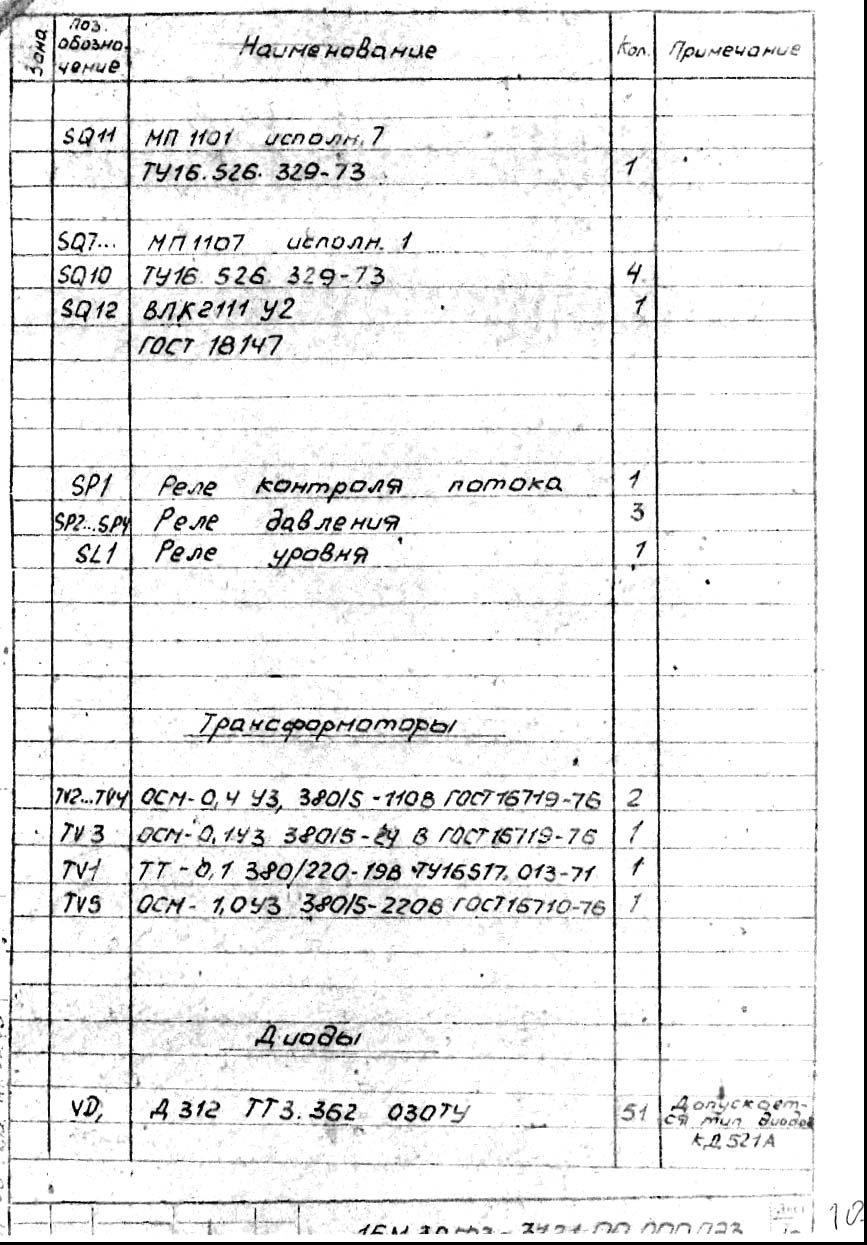 Зона
Поз. обозначение Наименование Кол. Примечание
SQ11 МП 1101 исполн. 7
ТУ16.526.329-73 1
SQ7... МП1107 исполн. 1
SQ10 ТУ16.526.329-73 4
SQ12 ВПК2111 У2 1
ГОСТ 18147
SP1 Реле контроля потока 1
SP2...SP4 Реле давления 3
SL1 Реле уровня 1
Трансформаторы
TV2...TV4 ОСМ-0,4 У3, 380/5-110В ГОСТ16719-76 2
TV3 ОСМ-0,1У3 380/5-24 В ГОСТ16719-76 1
TV1 ТТ-0,1 380/220-19В ТУ16517.013-71 1
TV5 ОСМ-1,0У3 380/5-220В ГОСТ16710-76 1
Диоды
VD, Д312 ТТ3.362 030ТУ 51 Допускает-
ся тип диодов
КД521А
Лист
10